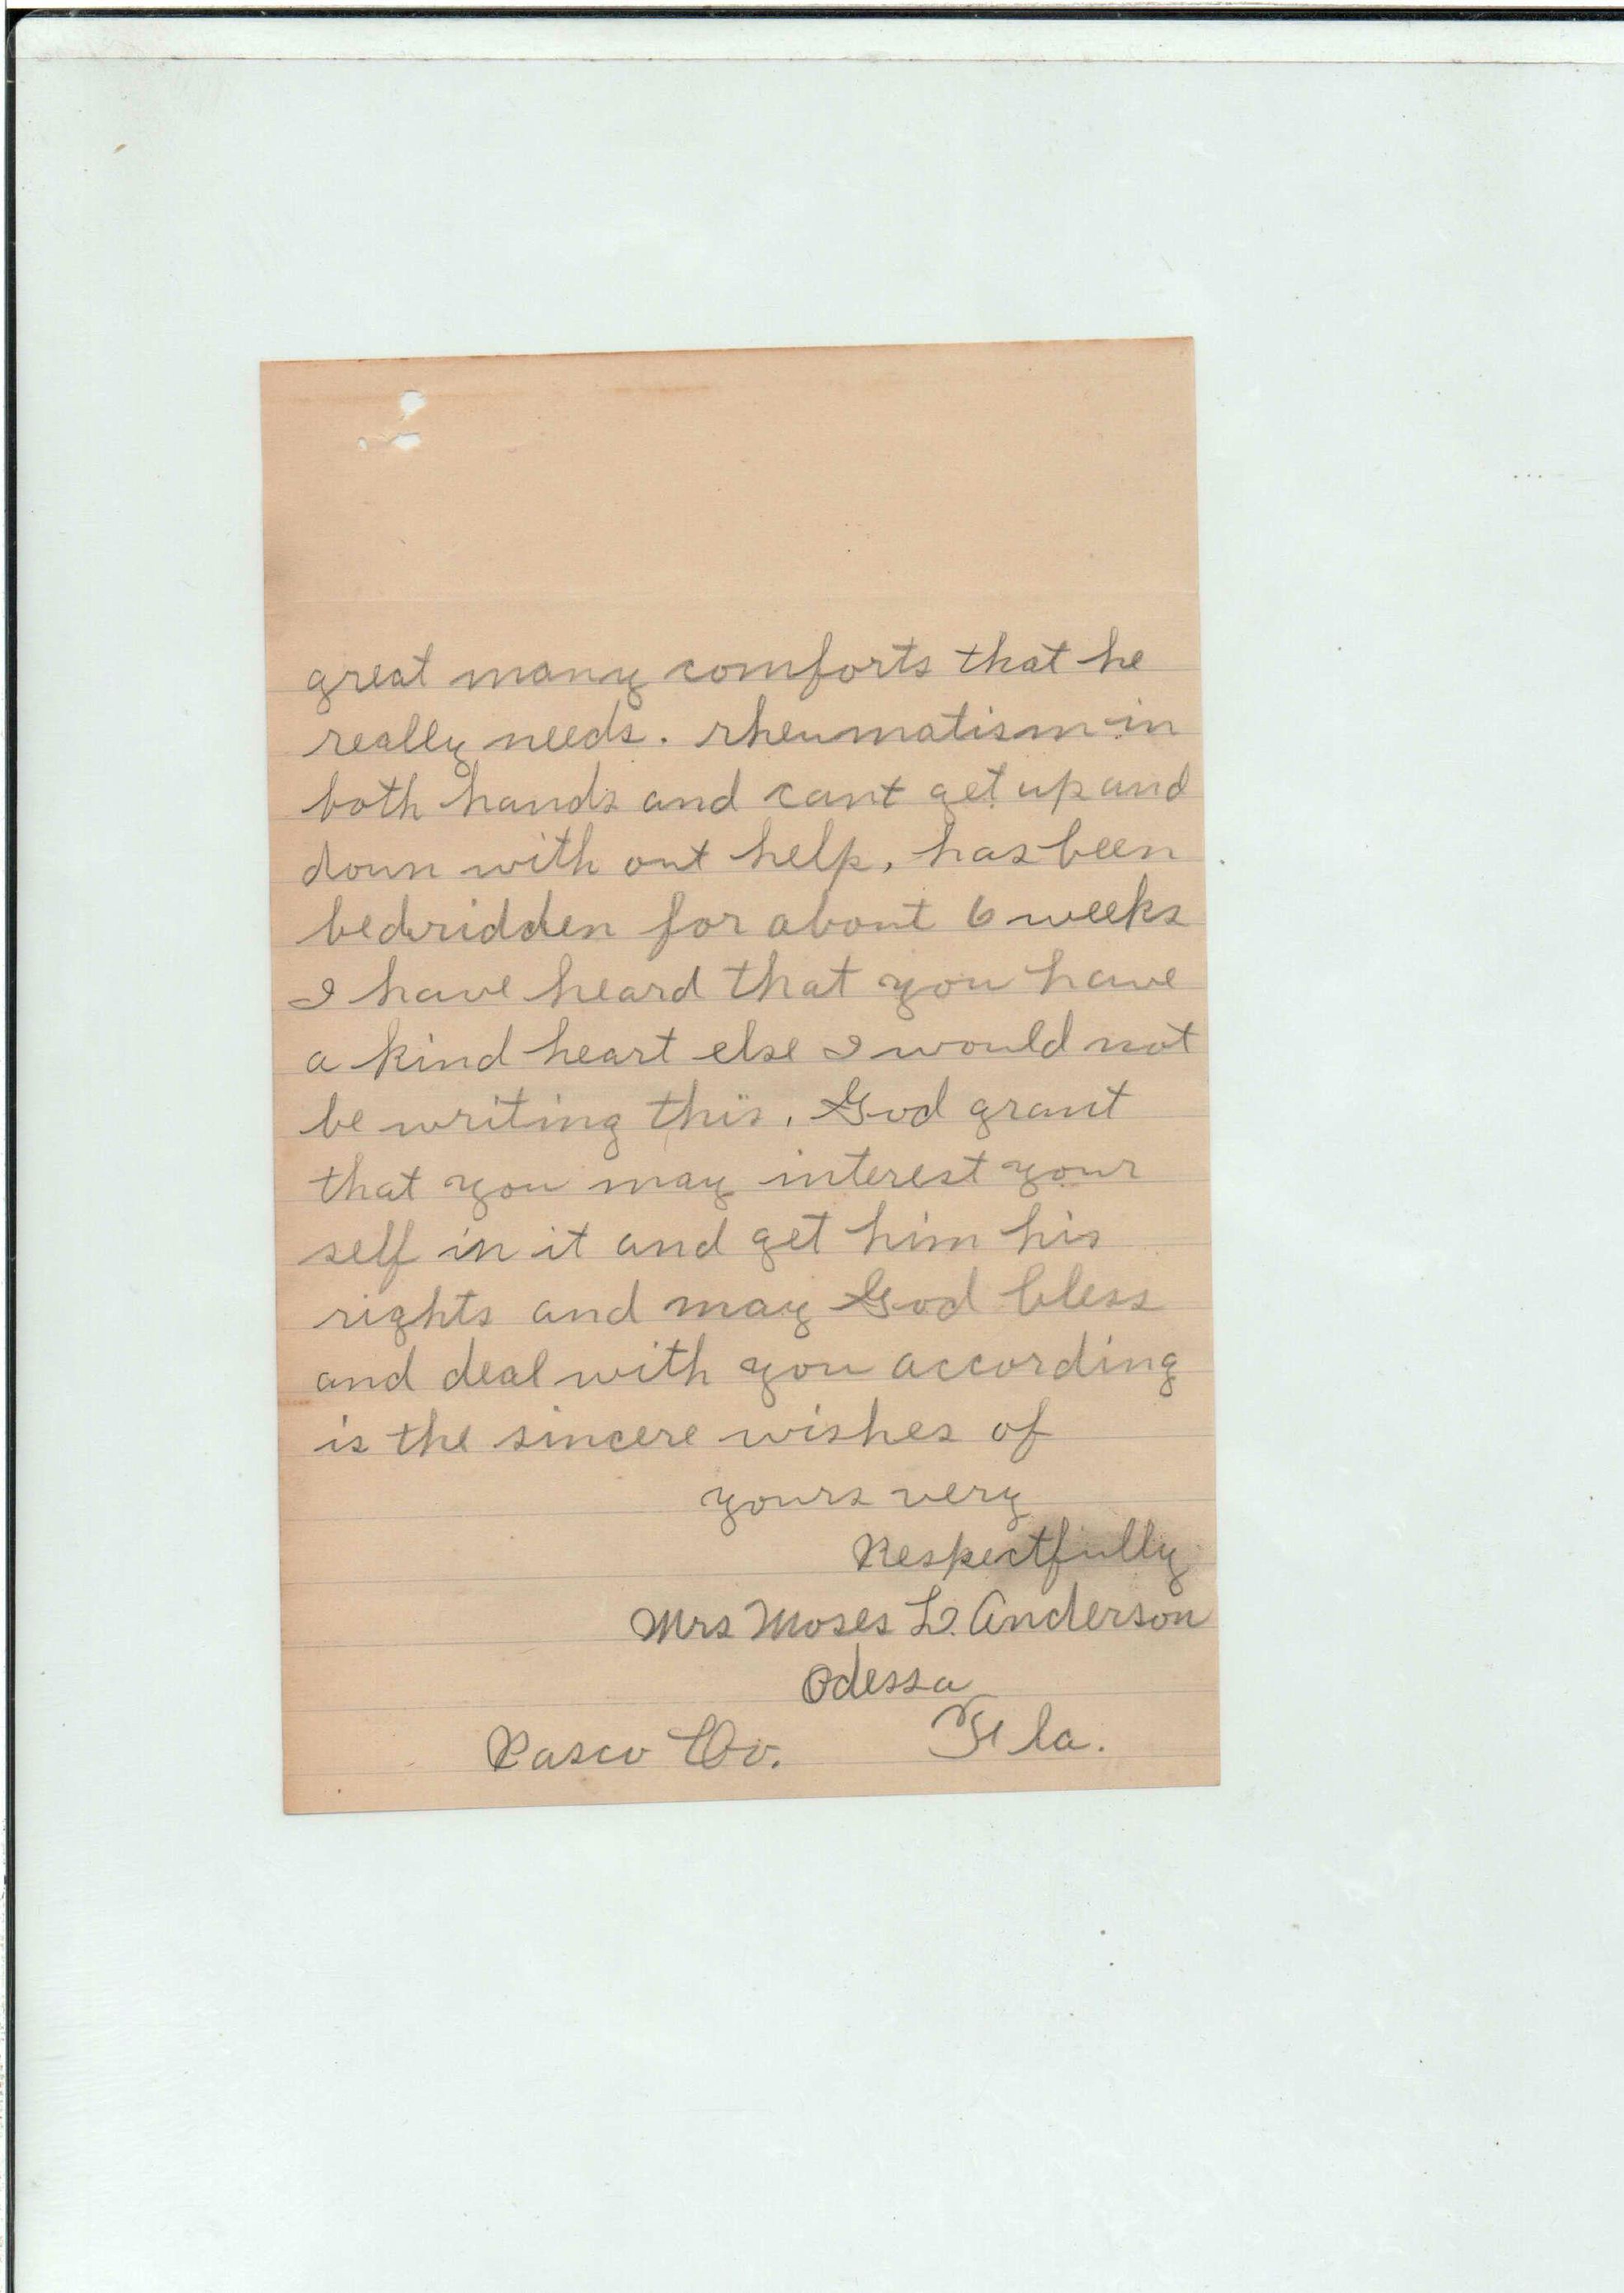 great many comforts that he
really needs. rheumatism in
both hands and cant get up and
down with out help, has been
bedridden for about 6 weeks
I have heard that you have
a kind heart else I would not
be writing this. God grant
that you may interest your
self in it and get him his
rights and may God bless
and deal with you according
is the sincere wishes of
yours very
Respectfully
Mrs Moses L. Anderson
Odessa
Pasco Co. Fla.